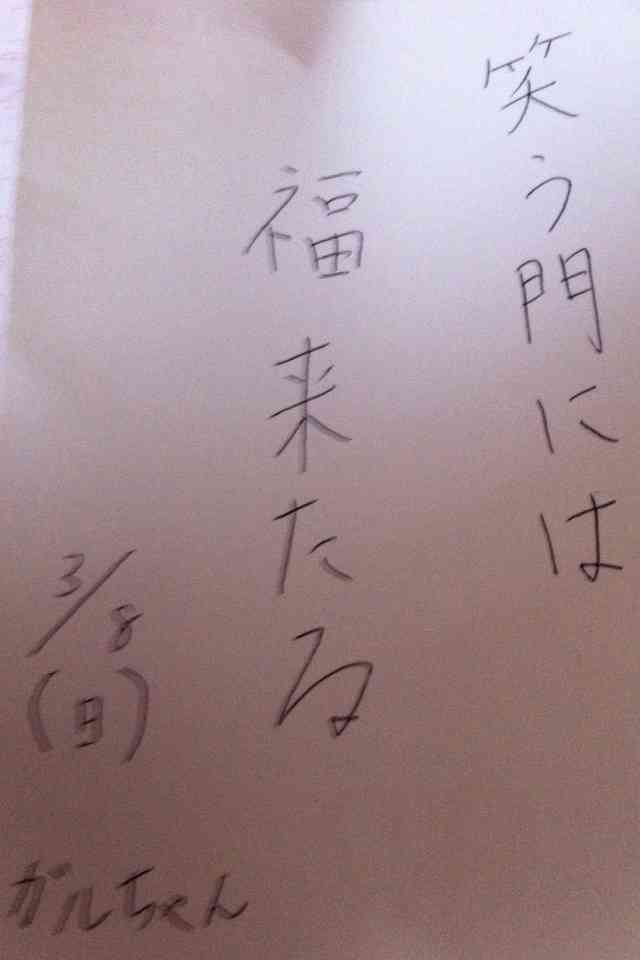 笑う門には
福来たる
3/8
(日)
ガルちゃん